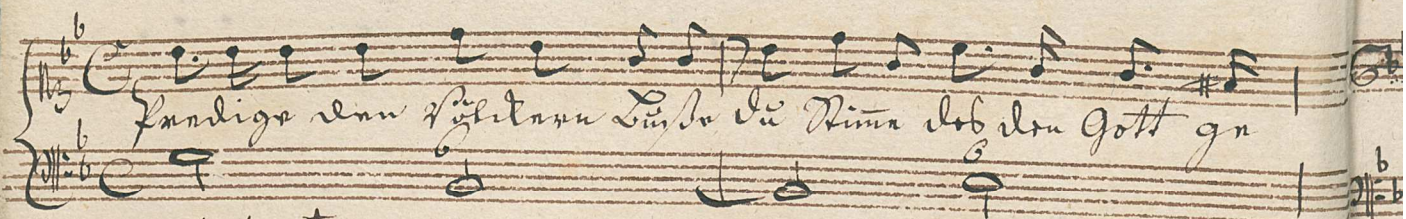 Predige den Völckern Buße du Stim̅e des den Gott ge
6 6